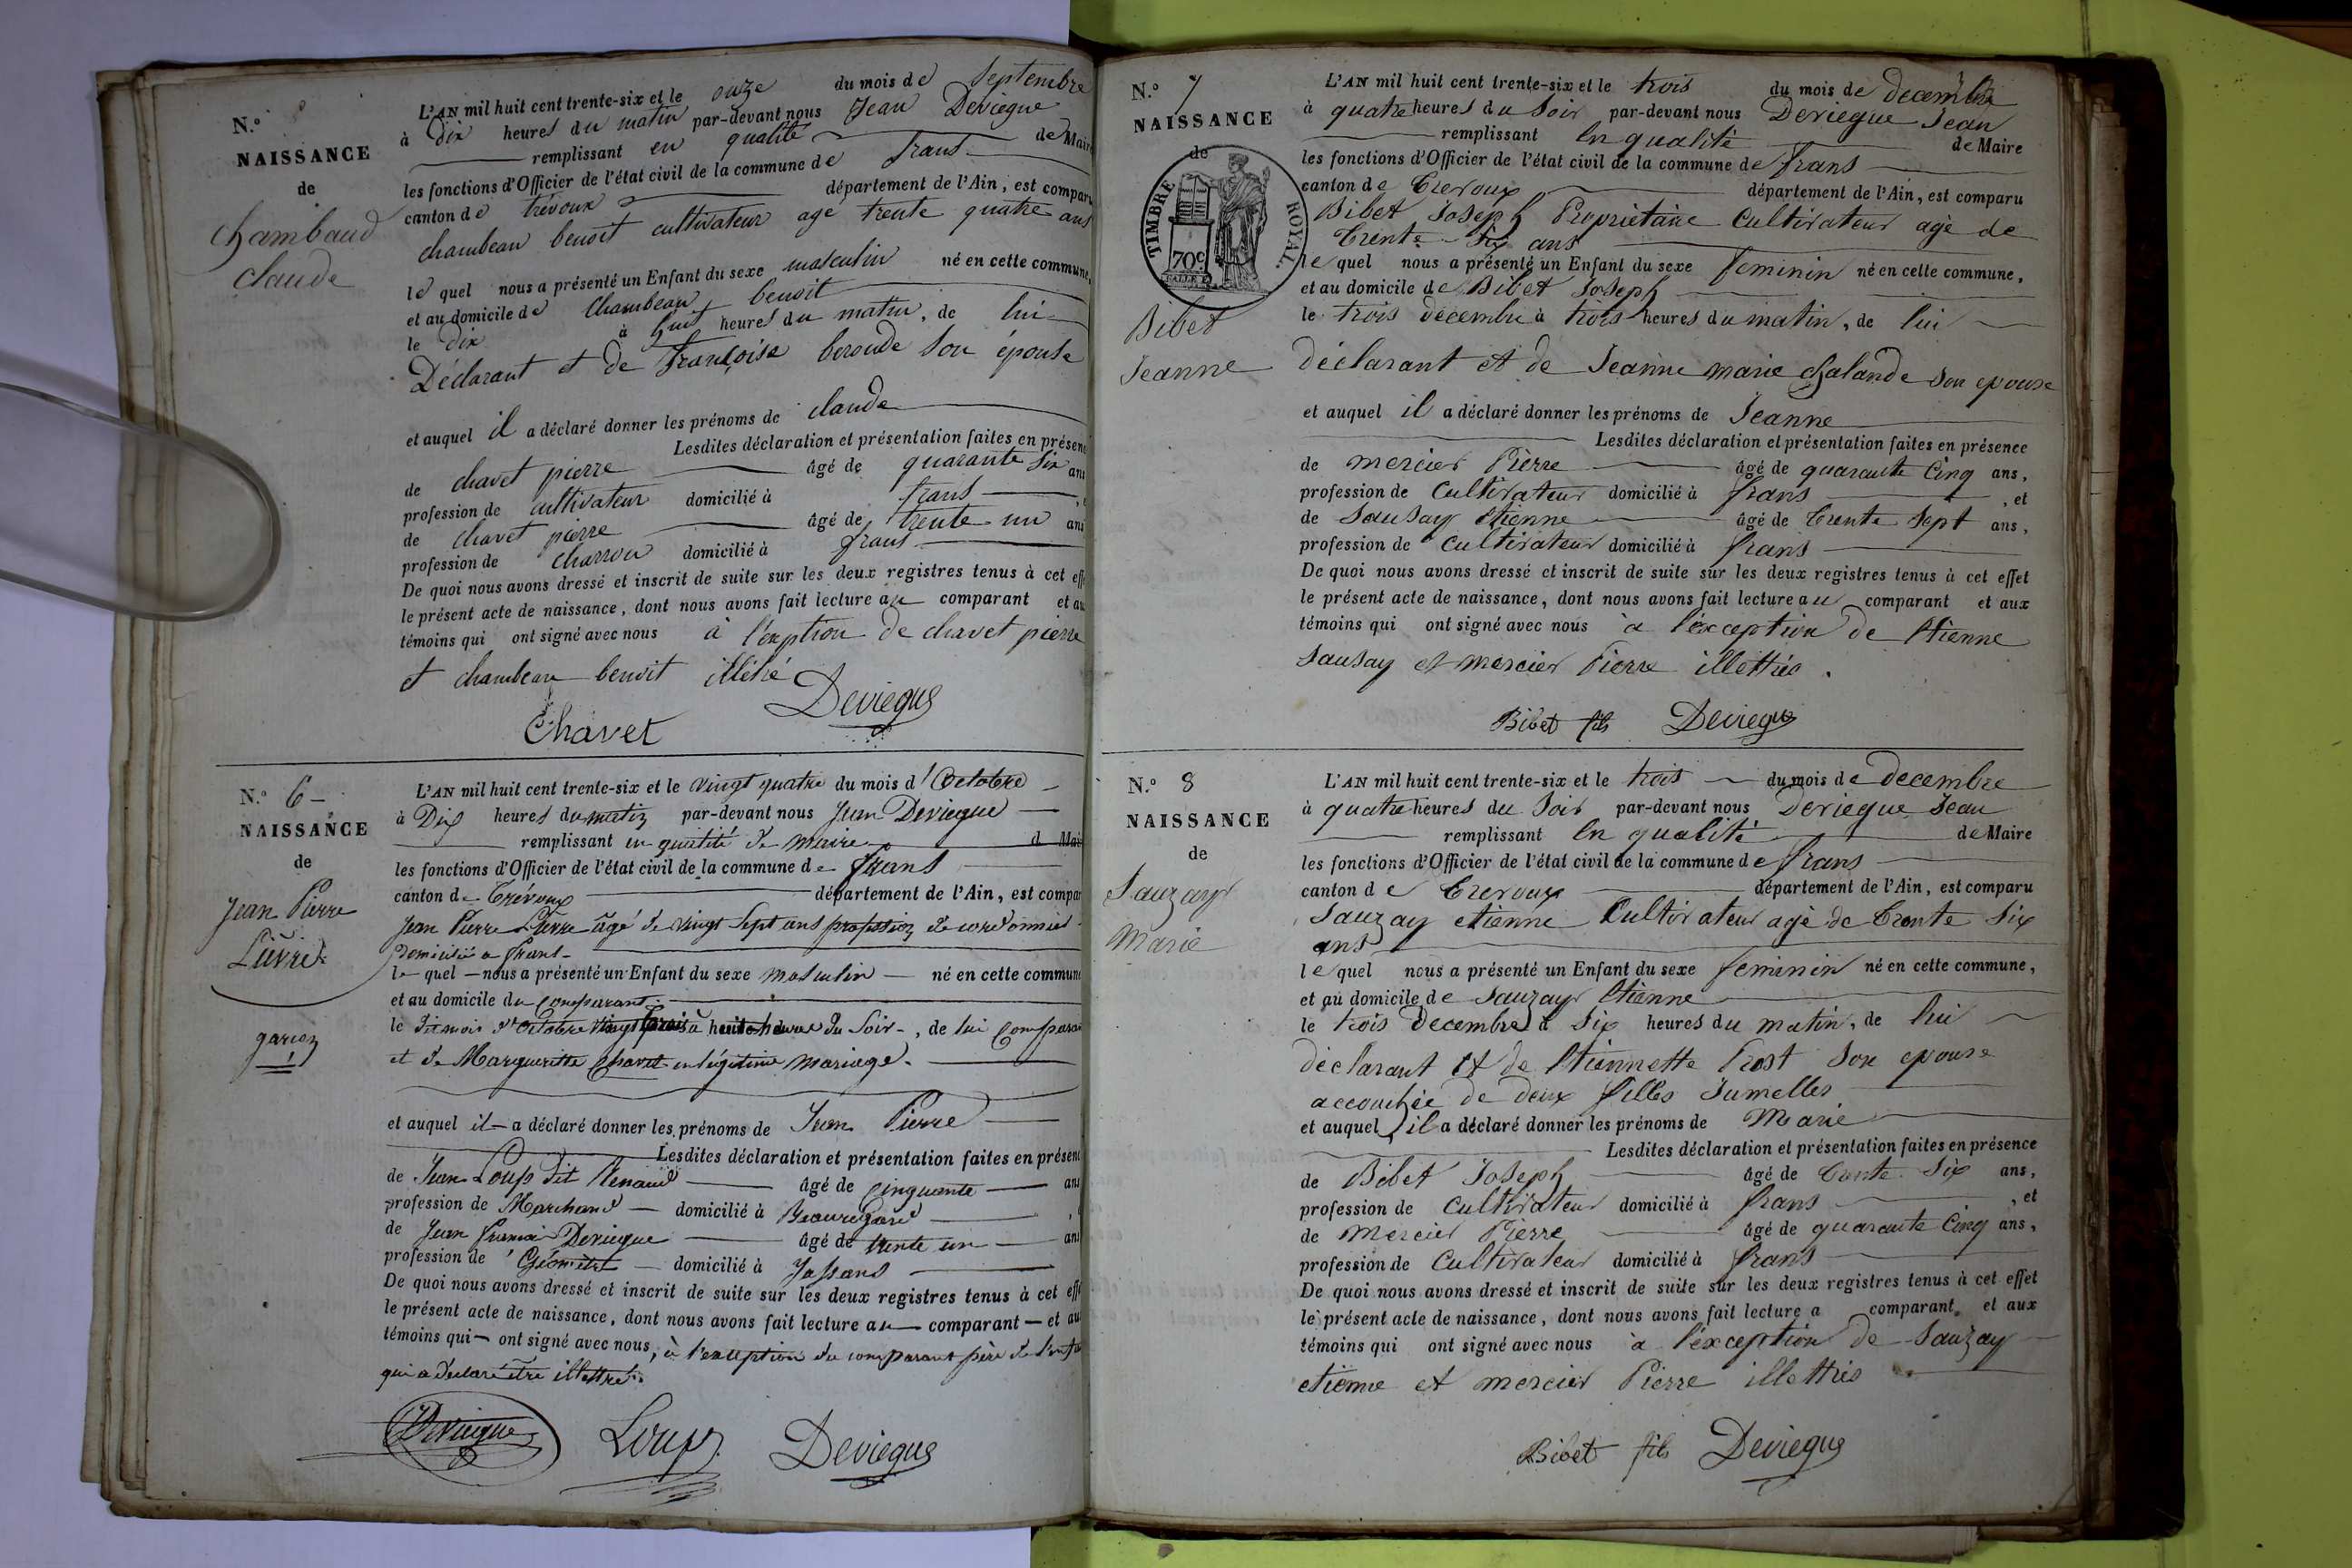 N.°
NAISSANCE
de
Chambaud
claude
L'AN mil huit cent trente-six et le onze du mois de Septembre
à dix heures du matin par-devant nous Jean Deviegue
remplissant en qualité de Maire
les fonctions d'Officier de l'état civil de la commune de frans
canton de trévoux département de l'Ain, est comparu
chambeau benoit cultivateur age trente quatre ans
le quel nous a présenté un Enfant du sexe masculin né en cette commune,
et au domicile de Chambeau benoit
le dix à huit heures du matin, de lui
Déclarant et de françoise beroude son épouse
et auquel il a déclaré donner les prénoms de claude
Lesdites déclaration et présentation faites en présen
de chavet pierre âgé de quarante six ans
profession de cultivateur domicilié à frans
de chavet pierre âgé de trente un ans
profession de charron domicilié à frans
De quoi nous avons dressé et inscrit de suite sur les deux registres tenus à cet eff
le présent acte de naissance, dont nous avons fait lecture au comparant et au
témoins qui ont signé avec nous à l'exption de chavet pierre
et chambeau benoit illétré
Deviegue
Chavet
N.° 6
NAISSANCE
de
Jean Pierre
Lièvre
garçon
L'AN mil huit cent trente-six et le vingt quatre du mois d'Octobre
à Dix heures du matin par-devant nous Jean Deviegue
remplissant en qualité de maire d Mai
les fonctions d'Officier de l'état civil de la commune de frans
canton de Trévoux département de l'Ain, est compar
Jean Pierre Lièvre âgé de vingt sept ans profession de cordonnier
Domicilié a frans
le quel nous a présenté un Enfant du sexe masculin né en cette commun
et au domicile du comparant
le dit mois d'Octobre vingt trois à huit heures du Soir, de lui Comparan
et de Margueritte Chavet en légitime mariage.
et auquel il a déclaré donner les prénoms de Jean Pierre
Lesdites déclaration et présentation faites en présen
de Jean Loup dit Renaud âgé de cinquante ans
profession de Marchand domicilié à Beauregard
de Jean Deviegue âgé de trente un ans
profession de Géomètre domicilié à Jassans
De quoi nous avons dressé et inscrit de suite sur les deux registres tenus à cet eff
le présent acte de naissance, dont nous avons fait lecture au comparant et au
témoins qui ont signé avec nous, à l'exception du comparant père de l'enfa
qui a déclaré être illettré.
Deviegue Loup Deviegue
N.° 7
NAISSANCE
de
TIMBRE ROYAL.
70c
Bibet
Jeanne
L'AN mil huit cent trente-six et le trois du mois de decembre
à quatre heures du Soir par-devant nous Deviegue Jean
remplissant En qualité de Maire
les fonctions d'Officier de l'état civil de la commune de frans
canton de Trevoux département de l'Ain, est comparu
Bibet Joseph Propriétaire Cultivateur agé de
trente-six ans
le quel nous a présenté un Enfant du sexe feminin né en cette commune,
et au domicile de Bibet Joseph
le trois décembre à trois heures du matin, de lui
déclarant et de Jeanne marie Chalande son epouse
et auquel il a déclaré donner les prénoms de Jeanne
Lesdites déclaration et présentation faites en présence
de mercier Pierre âgé de quarante Cinq ans,
profession de Cultivateur domicilié à frans , et
de Sausay Etienne âgé de trente Sept ans,
profession de Cultivateur domicilié à frans
De quoi nous avons dressé et inscrit de suite sur les deux registres tenus à cet effet
le présent acte de naissance, dont nous avons fait lecture au comparant et aux
témoins qui ont signé avec nous à l'éxception de Etienne
Sausay et mercier Pierre illettrés.
Bibet fils Deviegue
N.° 8
NAISSANCE
de
Sauzay
Marie
L'AN mil huit cent trente-six et le trois du mois de decembre
à quatre heures du Soir par-devant nous Deviegue Jean
remplissant En qualité de Maire
les fonctions d'Officier de l'état civil de la commune de frans
canton de Trevoux département de l'Ain, est comparu
Sauzay etienne Cultivateur agé de trente Six
ans
le quel nous a présenté un Enfant du sexe feminin né en cette commune,
et au domicile de Sauzay Etienne
le trois Decembre à Six heures du matin, de lui
déclarant et de Etiennette Prost son epouse
accouchée de deux filles Jumelles
et auquel il a déclaré donner les prénoms de Marie
Lesdites déclaration et présentation faites en présence
de Bibet Joseph âgé de trente Six ans,
profession de Cultivateur domicilié à frans , et
de Mercier Pierre âgé de quarante Cinq ans,
profession de Cultivateur domicilié à frans
De quoi nous avons dressé et inscrit de suite sur les deux registres tenus à cet effet
le présent acte de naissance, dont nous avons fait lecture a comparant et aux
témoins qui ont signé avec nous à l'éxception de Sauzay
etienne et mercier Pierre illettrés
Bibet fils Deviegue